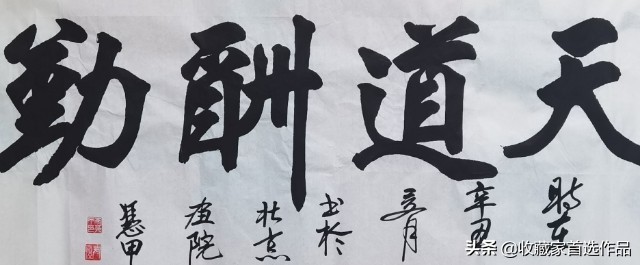 天道酬勤
時在
辛丑
月
书於
北京
画院
头条 @收藏家首选作品